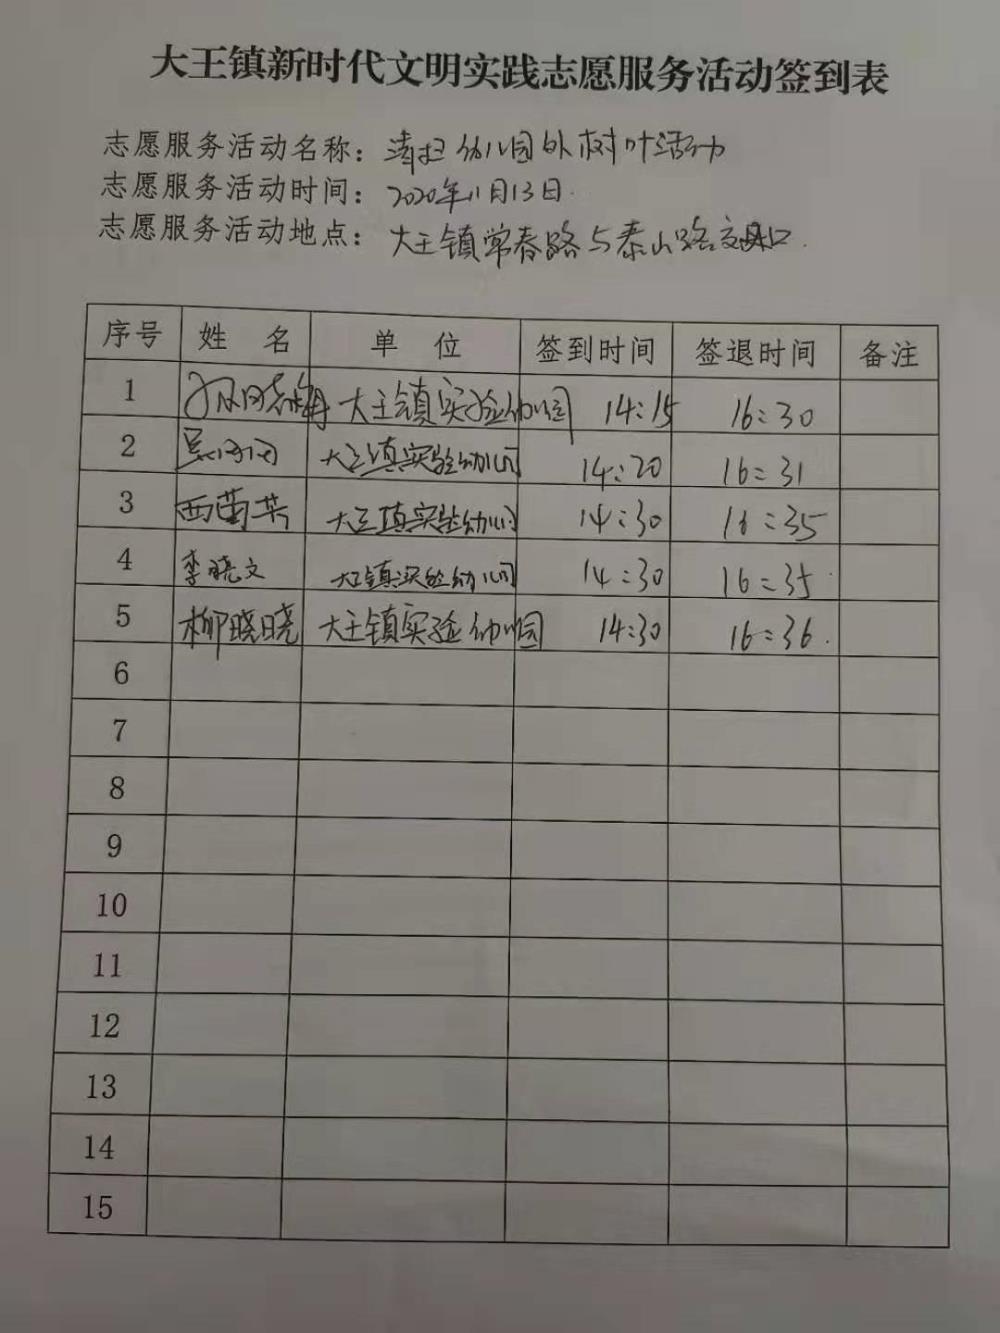 大王镇新时代文明实践志愿服务活动签到表
志愿服务活动名称：清扫幼儿园外树叶活动
志愿服务活动时间：2020年11月13日.
志愿服务活动地点：大王镇常春路与泰山路交口.
序号 姓 名 单 位 签到时间 签退时间 备注
1 大王镇实验幼儿园 14:15 16:30
2 大王镇实验幼儿园 14:20 16:31
3 大王镇实验幼儿园 14:30 16:35
4 李晓文 大王镇实验幼儿园 14:30 16:35
5 柳晓晓 大王镇实验幼儿园 14:30 16:36.
6
7
8
9
10
11
12
13
14
15